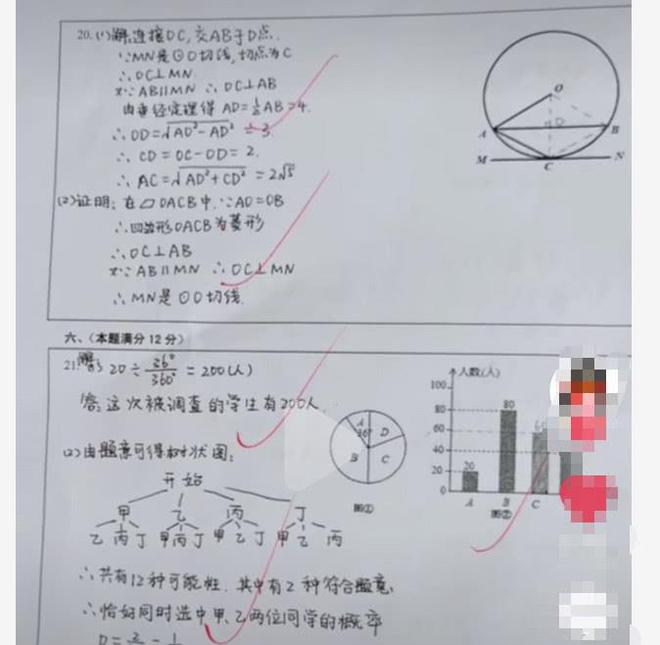 20.(1)解:连接OC,交AB于D点.
∵MN是⊙O切线,切点为C
∴OC⊥MN.
又∵AB∥MN ∴OC⊥AB
由垂径定理得 AD=½AB=4.
∴OD=√AO²-AD² =3.
∴CD=OC-OD=2.
∴AC=√AD²+CD² =2√5
(2)证明:在▱OACB中,∵AO=OB
∴四边形OACB为菱形
∴OC⊥AB
又∵AB∥MN ∴OC⊥MN
∴MN是⊙O切线.
O
A
D
B
M
C
N
六、(本题满分12分)
21.解:(1) 20÷36°/360°=200(人)
答:这次被调查的学生有200人.
(2)由题意可得树状图:
开始
甲 乙 丙 丁
乙 丙 丁 甲 丙 丁 甲 乙 丁 甲 乙 丙
∴共有12种可能性,其中有2种符合题意,
∴恰好同时选中甲、乙两位同学的概率
A
36°
D
B
C
图①
人数(人)
100
80
60
40
20
0
20
80
A
B
C
图②